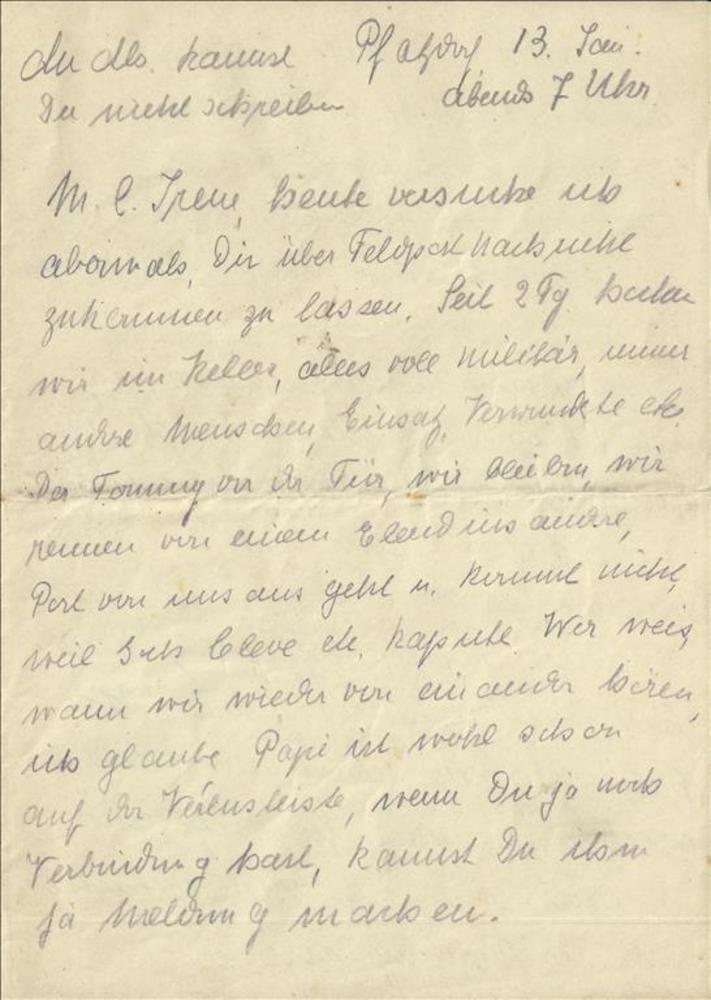 An dls. kannst Pfalzdorf 13. Jan.
Du nicht schreiben abends 7 Uhr
M. l. Irene, heute versuche ich
abermals, Dir über Feldpost Nachricht
zukommen zu lassen. Seit 2 Tg.
wir im Keller, alles voll Militär, immer
andre Menschen, Einsatz, Verwundete etc.
Der Tommy vor der Tür, wir bleiben, wir
rennen von einem Elend ins andre,
Post von uns aus geht u. kommt nicht,
weil Cleve etc. kaputt. Wer weis,
wann wir wieder von einander hören,
ich glaube Papi ist wohl schon
auf der, wenn Du ja noch
Verbindung hast, kannst Du ihm
ja Meldung machen.